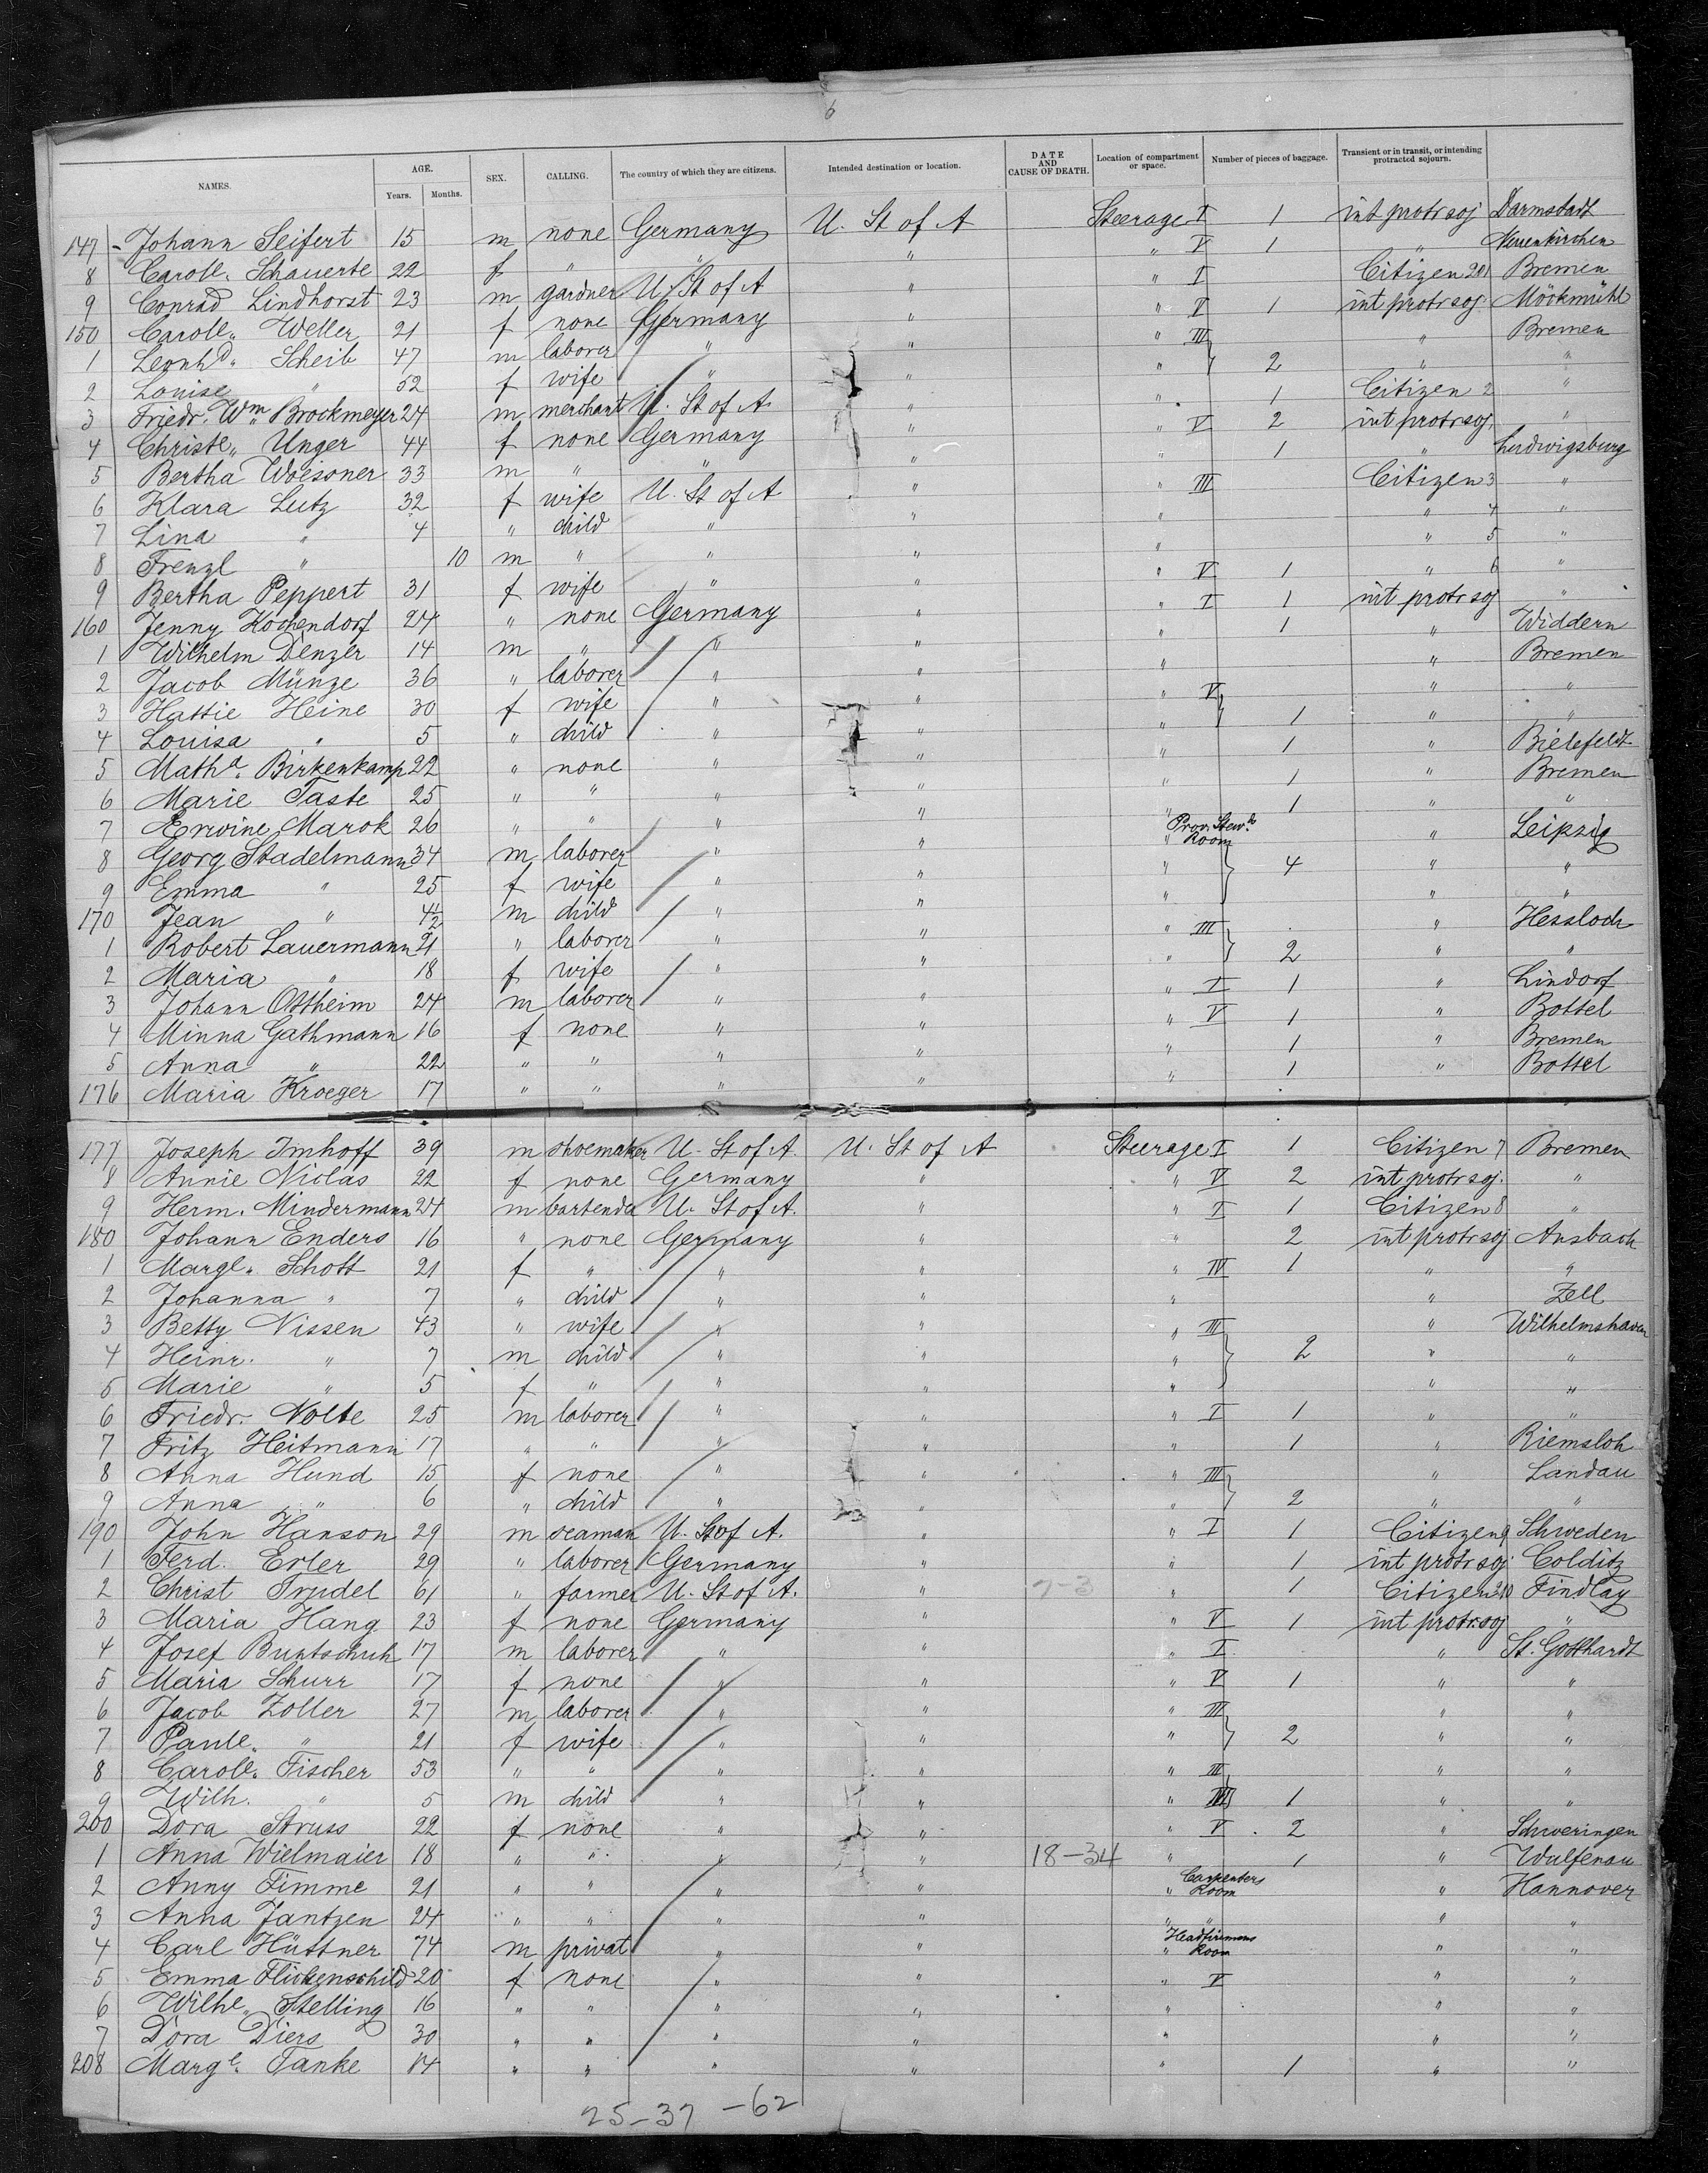 6
NAMES. AGE. Years. Months. SEX. CALLING. The country of which they are citizens. Intended destination or location. DATE AND CAUSE OF DEATH. Location of compartment or space. Number of pieces of baggage. Transient or in transit, or intending protracted sojourn.
147 - Johann Seifert 15 m none Germany U. St of A Steerage I 1 int protr soj Darmstadt
8 Caroll. Schauerte 22 f " " " " V 1 " Neuenkirchen
9 Conrad Lindhorst 23 m gardner U. St of A " " I Citizen 201 Bremen
150 Caroll. Weller 21 f none Germany " " V 1 int protr soj. Möckmühl
1 Leonhd. Scheib 47 m laborer " " " III " Bremen
2 Louise " 52 f wife " " " 2 " "
3 Friedr. Wm Brockmeyer 24 m merchant U. St of A " " 1 Citizen 2 "
4 Christe. Unger 44 f none Germany " " V 2 int protr soj. "
5 Bertha Woesoner 33 m " " " " 1 " Ludwigsburg
6 Klara Lutz 32 f wife U. St of A " " III Citizen 3 "
7 Lina " 4 " child " " " " 4 "
8 Frenzl " 10 m " " " " " 5 "
9 Bertha Peppert 31 f wife " " " V 1 " 6 "
160 Jenny Kochendorf 24 " none Germany " " I 1 int protr soj "
1 Wilhelm Denzer 14 m " " " " 1 " Widdern
2 Jacob Münze 36 " laborer " " " " Bremen
3 Hattie Heine 30 f wife " " " V " "
4 Louisa " 5 " child " " " 1 " "
5 Matha. Birkenkamp 22 " none " " " 1 " Bielefeldt
6 Marie Taste 25 " " " " " 1 " Bremen
7 Erwine Marok 26 " " " " " 1 " "
8 Georg Stadelmann 34 m laborer " " " Prov. Stewds Room " Leipzig
9 Emma " 25 f wife " " " 4 " "
170 Jean " 4½ m child " " " " "
1 Robert Lauermann 21 " laborer " " " III " Hessloch
2 Maria " 18 f wife " " " 2 " "
3 Johann Ottheim 24 m laborer " " " I 1 " Lindorf
4 Minna Gathmann 16 f none " " " V 1 " Bottel
5 Anna " 22 " " " " " 1 " Bremen
176 Maria Kroeger 17 " " " " " 1 " Bottel
177 Joseph Imhoff 39 m shoemaker U. St of A. U. St of A Steerage I 1 Citizen 7 Bremen
8 Annie Niolas 22 f none Germany " " V 2 int protr soj. "
9 Herm. Mindermann 24 m bartender U. St of A. " " I 1 Citizen 8 "
180 Johann Enders 16 " none Germany " " 2 int protr soj Ansbach
1 Margl. Schott 21 f " " " " IV 1 " "
2 Johanna " 7 " child " " " " Zell
3 Betty Nissen 43 " wife " " " III " Wilhelmshaven
4 Heinr. " 7 m child " " " 2 " "
5 Marie " 5 f " " " " " "
6 Friedr. Nolte 25 m laborer " " " I 1 " "
7 Fritz Heitmann 17 " " " " " 1 " Riemsloh
8 Anna Hund 15 f none " " " III " Landau
9 Anna " 6 " child " " " 2 " "
190 John Hanson 29 m seaman U. St of A. " " I 1 Citizen 9 Schweden
1 Ferd. Erler 29 " laborer Germany " " 1 int protr soj. Colditz
2 Christ Trudel 61 " farmer U. St of A. " 7-3 " 1 Citizen 210 Findlay
3 Maria Hang 23 f none Germany " " V 1 int protr soj "
4 Josef Buntschuh 17 m laborer " " " I " St. Gotthardt
5 Maria Schurr 17 f none " " " V 1 " "
6 Jacob Zoller 27 m laborer " " " III " "
7 Paule. " 21 f wife " " " 2 " "
8 Caroll. Fischer 53 " " " " " III " "
9 Wilh. " 5 m child " " " III 1 " "
200 Dora Struss 22 f none " " " V 2 " Schweringen
1 Anna Wielmaier 18 " " " " 18-34 " 1 " Wulfenau
2 Anny Timme 21 " " " " " Carpenters Room " Hannover
3 Anna Jantzen 24 " " " " " " " "
4 Carl Hüttner 74 m privat " " " Headfiremens Room " "
5 Emma Flickenschild 20 f none " " " V " "
6 Wilhe. Stelling 16 " " " " " " "
7 Dora Diers 30 " " " " " " "
208 Marge. Tanke 14 " " " " " 1 " "
25-37-62